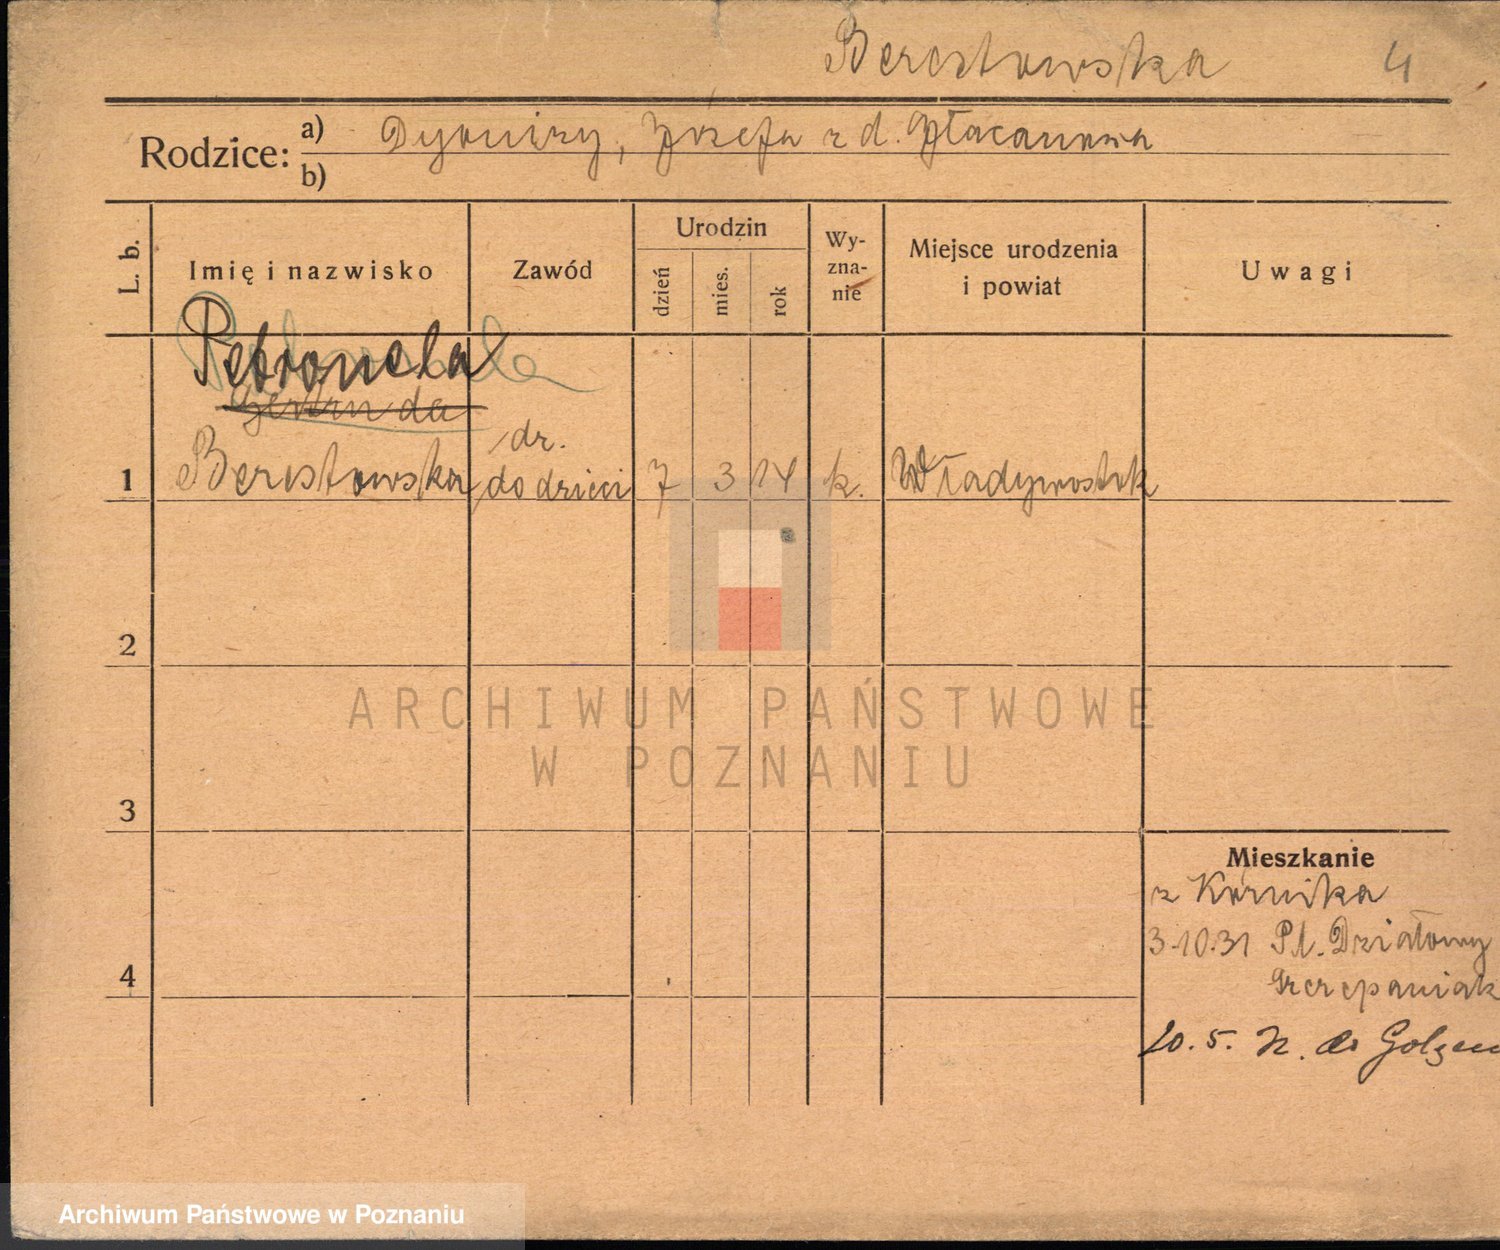 Berestowska 4
Rodzice:
a) Dyonizy, Józefa z d.
b)
L. b.
Imię i nazwisko
Zawód
Urodzin
dzień
mies.
rok
Wy-
zna-
nie
Miejsce urodzenia
i powiat
Uwagi
Petronela
Gertruda
dr.
1 Berestowska do dzieci 7 3 14 k. Władywostok
2
ARCHIWUM PAŃSTWOWE
W POZNANIU
3
Mieszkanie
z Kórnika
3.10.31 Pl. Działowy
Szczepaniak
4
20. 5.
Archiwum Państwowe w Poznaniu